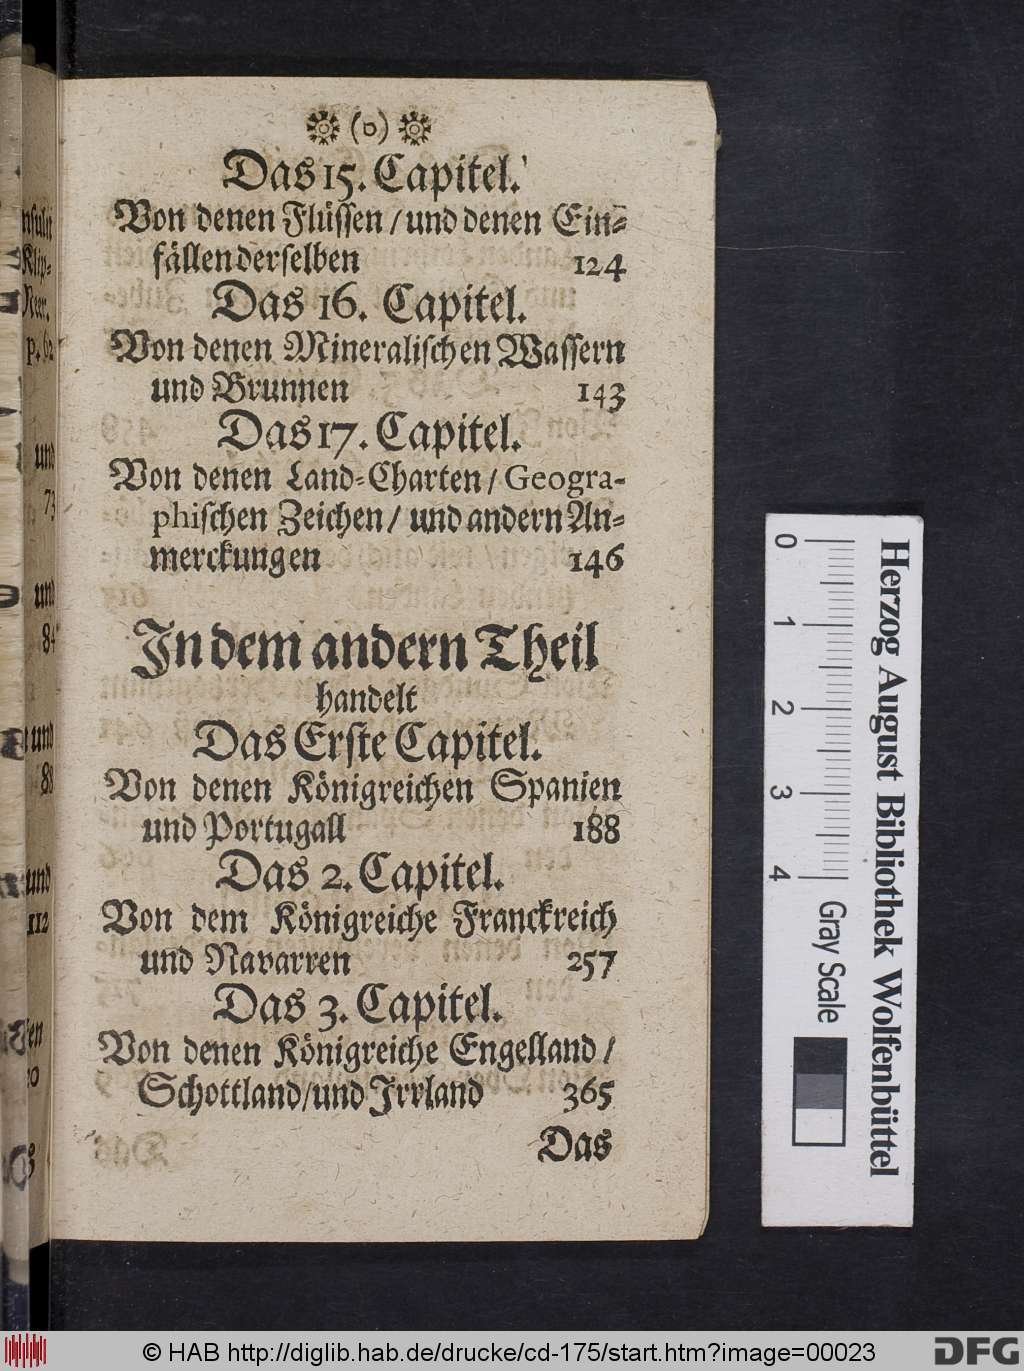 (o)
Das 15. Capitel.
Von denen Flüssen / und denen Ein=
fällen derselben 124
Das 16. Capitel.
Von denen Mineralischen Wassern
und Brunnen 143
Das 17. Capitel.
Von denen Land=Charten / Geogra-
phischen Zeichen / und andern An=
merckungen 146
In dem andern Theil
handelt
Das Erste Capitel.
Von denen Königreichen Spanien
und Portugall 188
Das 2. Capitel.
Von dem Königreiche Franckreich
und Navarren 257
Das 3. Capitel.
Von denen Königreiche Engelland /
Schottland / und Irrland 365
Das
p. 62
und
73
und
84
und
88
und
112
0 1 2 3 4
Gray Scale
Herzog August Bibliothek Wolfenbüttel
© HAB http://diglib.hab.de/drucke/cd-175/start.htm?image=00023
DFG